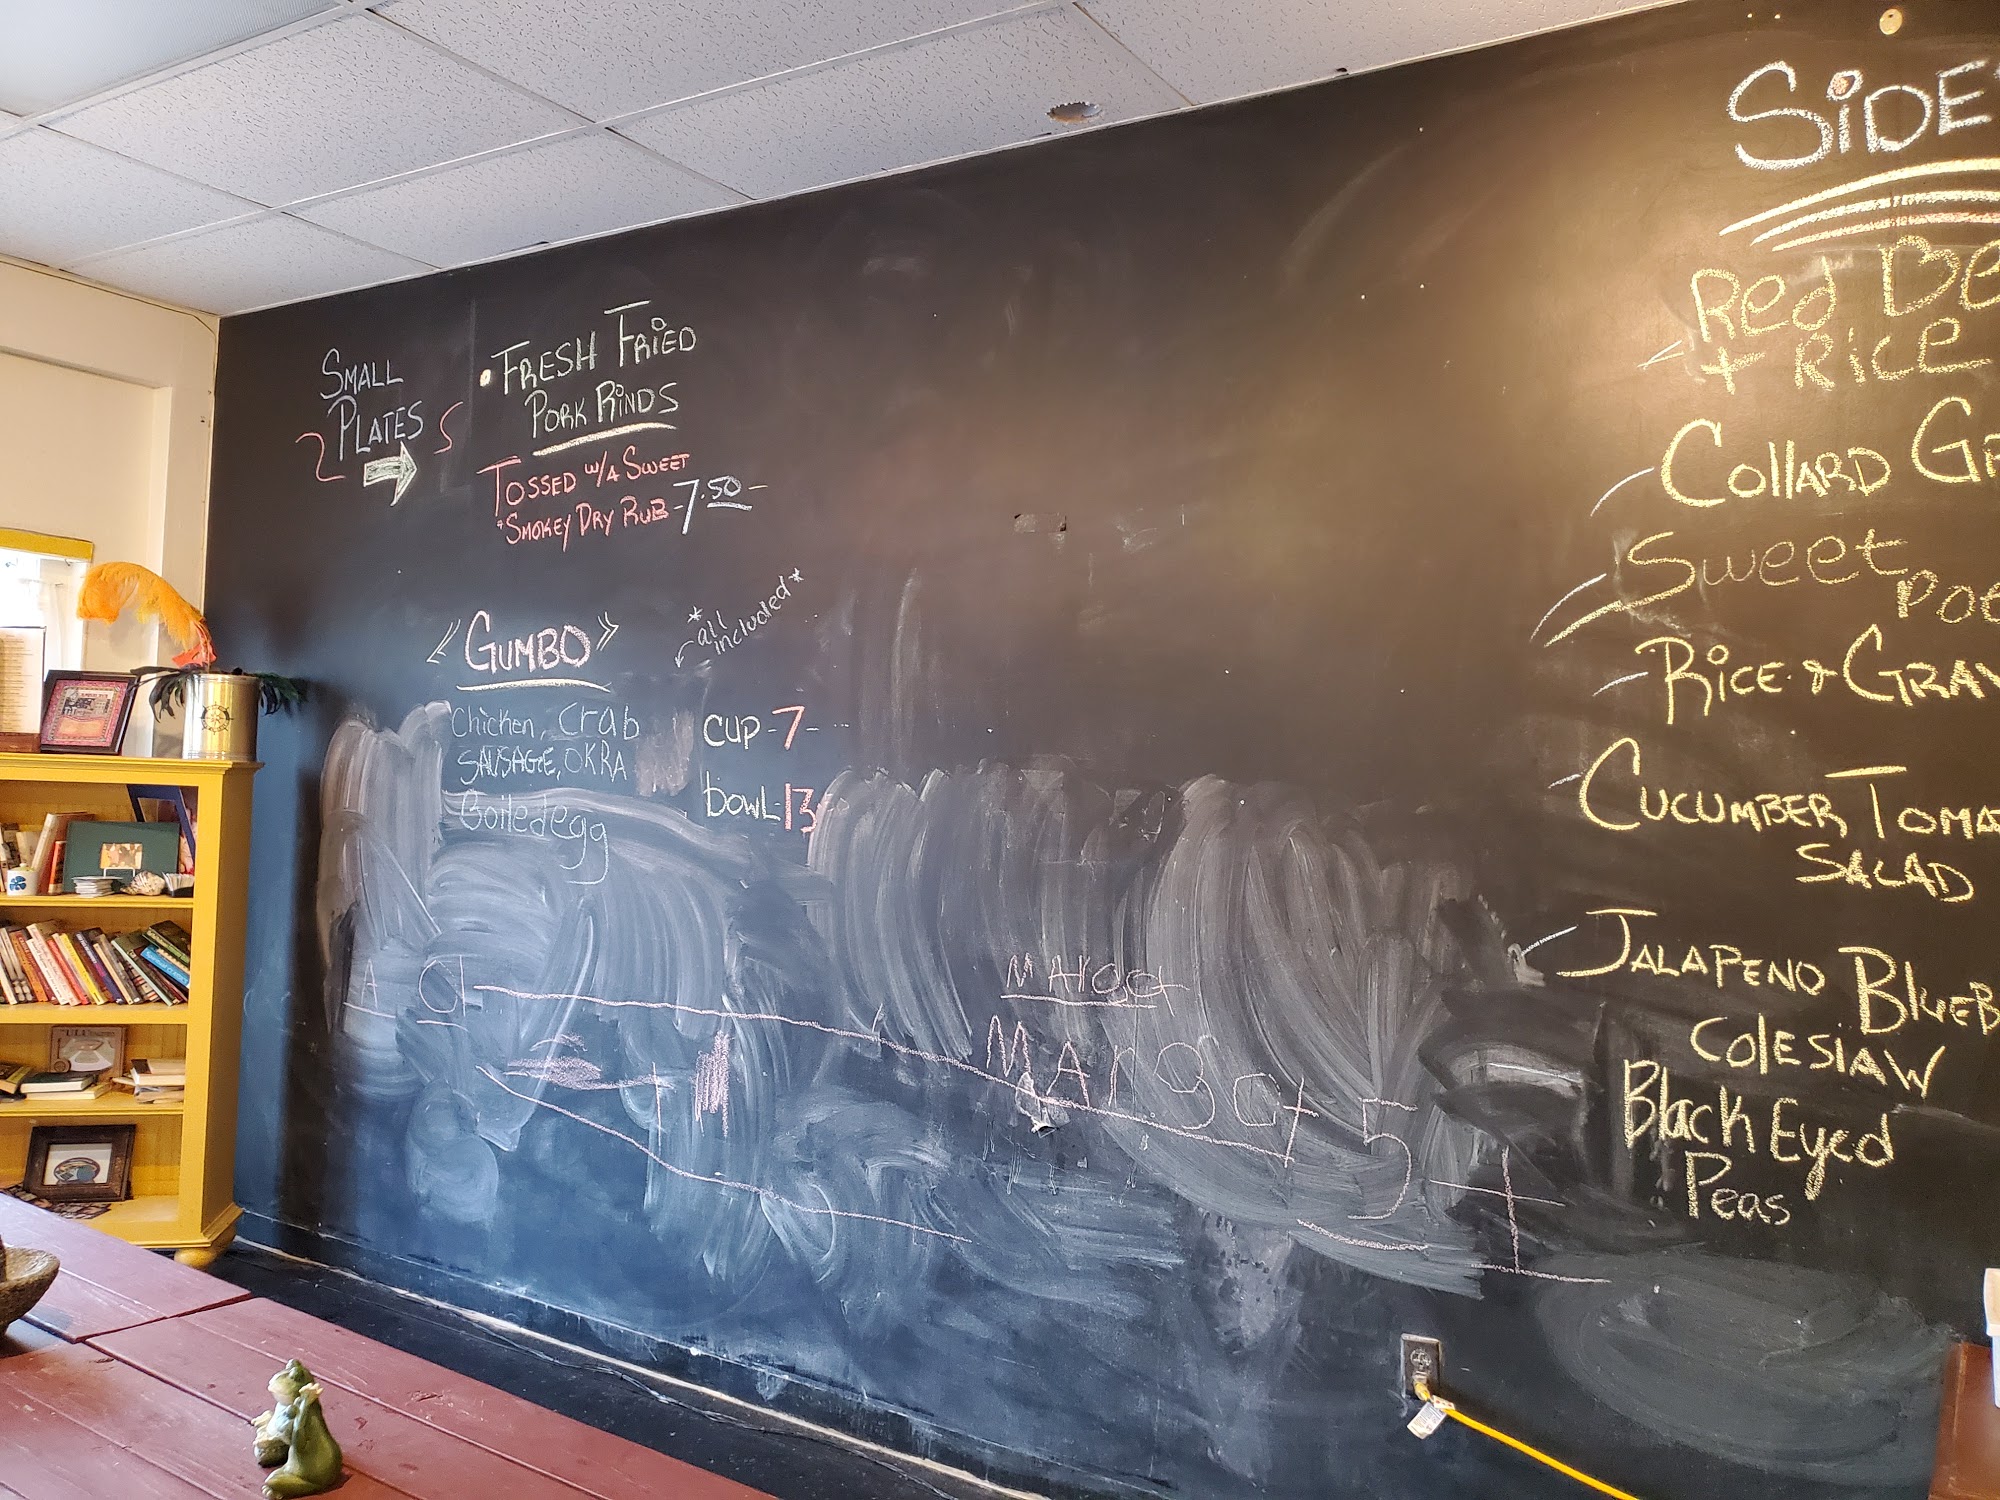 SMALL
PLATES
• FRESH FRIED
PORK RINDS
TOSSED W/A SWEET
+ SMOKEY DRY RUB - 7.50 -
« GUMBO »
*all
included*
Chicken, Crab
SAUSAGE, OKRA
Boiled egg
CUP - 7 -
bowl - 13
A
MArgat
MArgat 5
SiDE
Red Be
+ RiCE
Collard GR
Sweet
Poe
RiCE & GRAV
CUCUMBER TOMA
SALAD
JALAPENO BLUEB
COlESlAW
Black Eyed
Peas